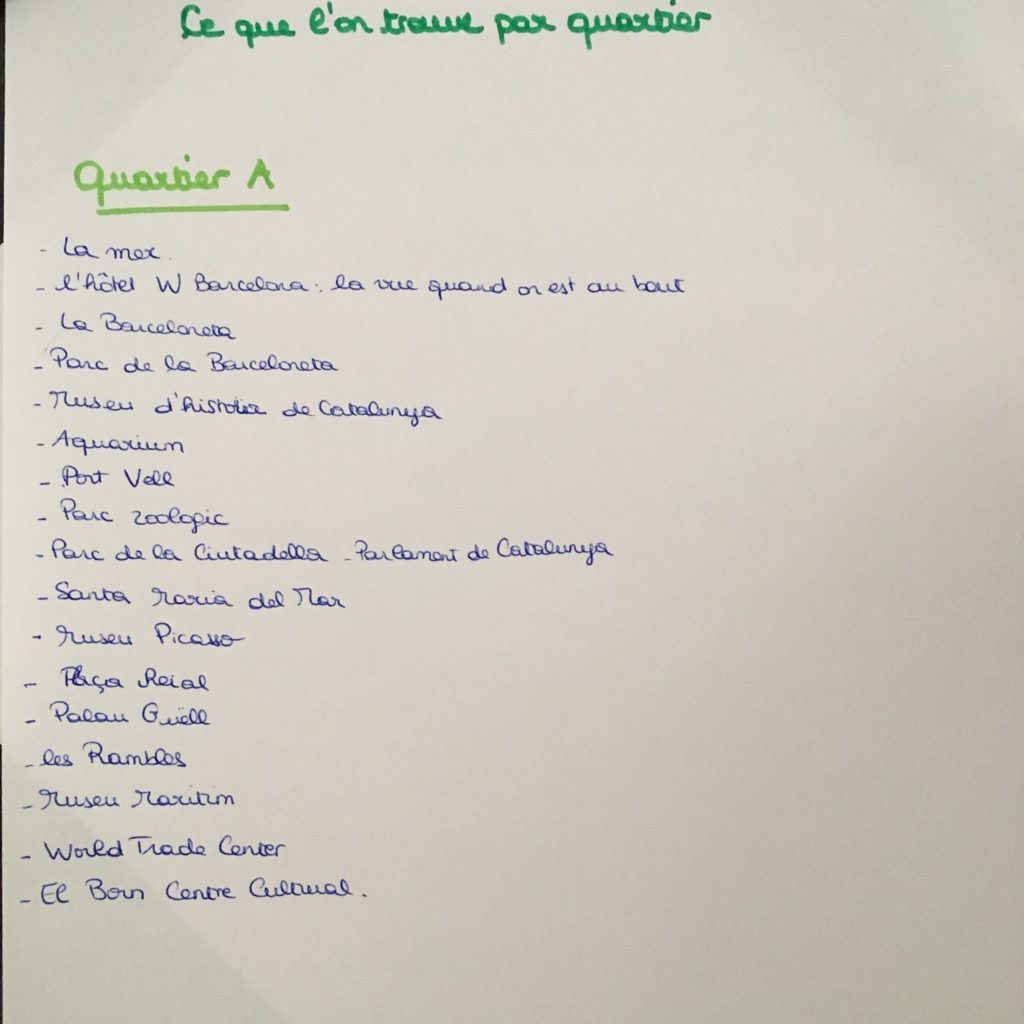 Ce que l'on trouve par quartier
Quartier A
- La mer.
- l'hôtel W Barcelona : la vue quand on est au bout
- La Barceloneta
- Parc de la Barceloneta
- Museu d'història de Catalunya
- Aquarium
- Port Vell
- Parc zoologic
- Parc de la Ciutadella - Parlament de Catalunya
- Santa Maria del Mar
- Museu Picasso
- Plaça Reial
- Palau Güell
- les Rambles
- Museu Maritim
- World Trade Center
- El Born Centre Cultural.